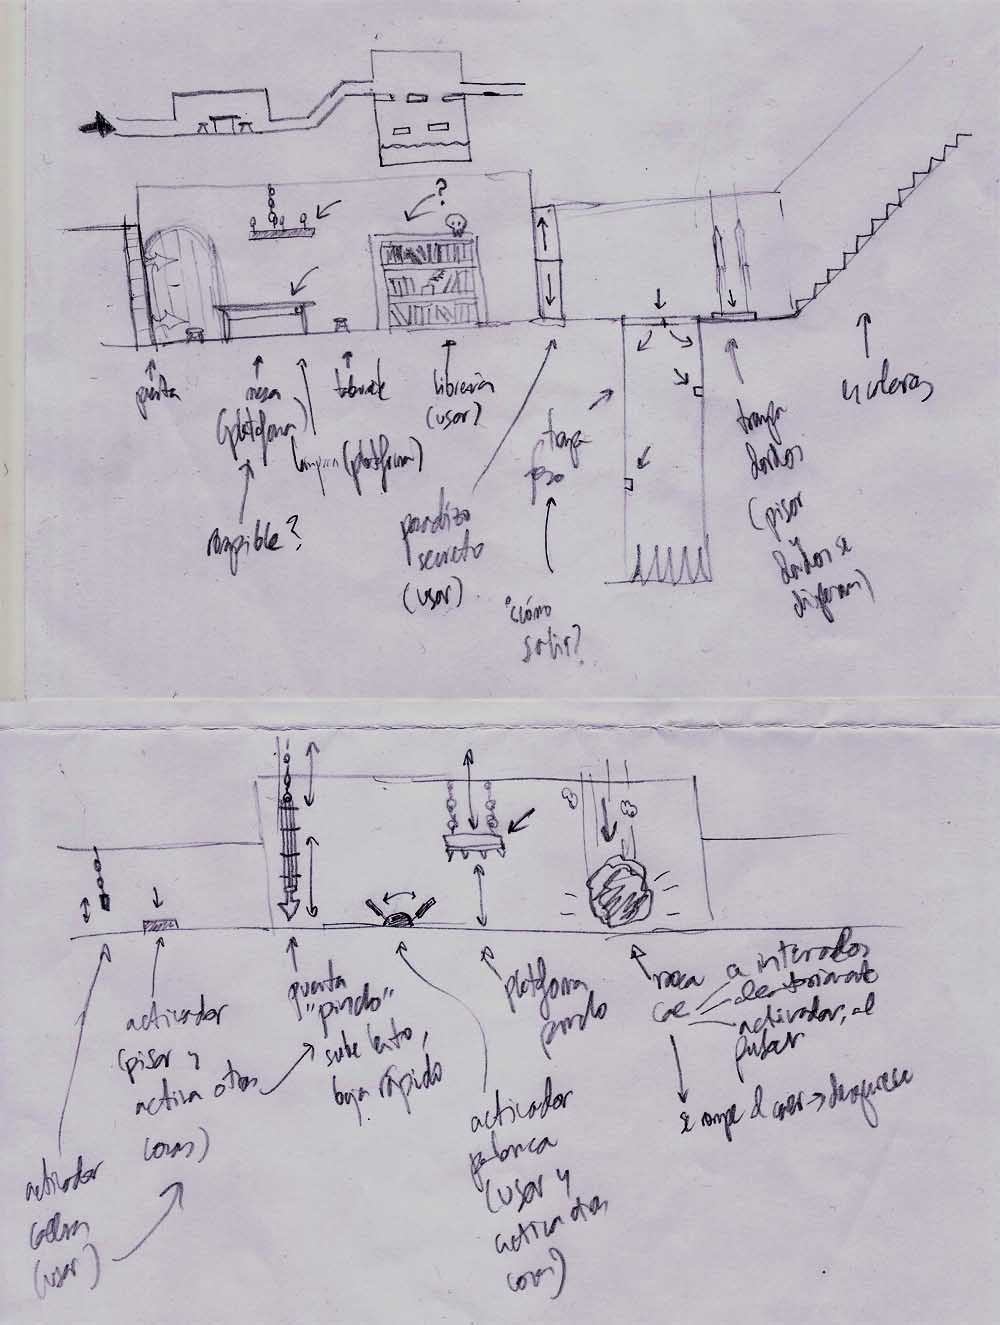 ?
puerta
mesa
(plataforma)
rompible?
lampara (plataforma)
taburete
libreria
(usar?
pasadizo
secreto
(usar)
trampa
foso
¿cómo
salir?
trampa
dardos
(pisar
y
dardos se
disparan)
escaleras
activador
cadena
(usar)
activador
(pisar y
activa otras
cosas)
puerta
"pincho"
sube lento,
baja rápido
activador
palanca
(usar y
activa otras
cosas)
plataforma
pincho
roca
cae
a intervalos
aleatoriamente
activador, al
pulsar
se rompe al caer → desaparece